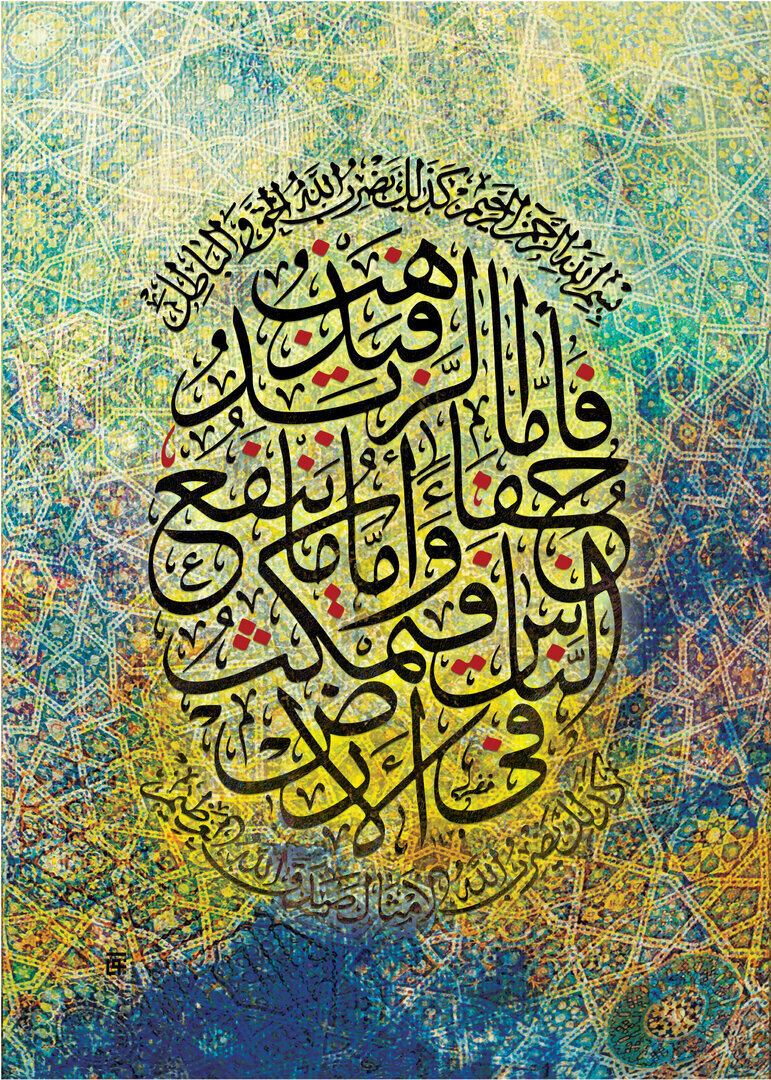 بِسْمِ اللهِ الرَّحْمٰنِ الرَّحِيْمِ كَذَلِكَ يَضْرِبُ اللَّهُ الْحَقَّ وَالْبَاطِلَ
فَأَمَّا الزَّبَدُ فَيَذْهَبُ
جُفَاءً وَأَمَّا مَا يَنْفَعُ
النَّاسَ فَيَمْكُثُ
فِي الْأَرْضِ
كَذَلِكَ يَضْرِبُ اللَّهُ الْأَمْثَالَ صَدَقَ اللهُ الْعَظِيْمُ